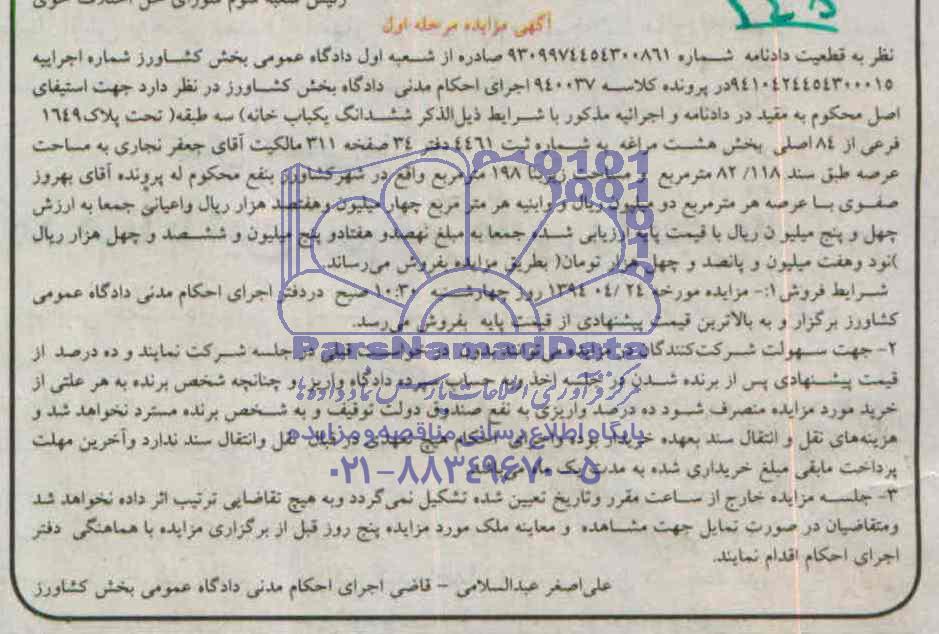 رئیس شعبه سوم شورای حل اختلاف خوی
آگهی مزایده مرحله اول
نظر به قطعیت دادنامه شماره ۹۳۰۹۹۷٤٤٥٤۳۰۰۸٦۱ صادره از شعبه اول دادگاه عمومی بخش کشاورز شماره اجراییه
۹٤۱۰٤۲٤٤٥٤۳۰۰۰۱٥در پرونده کلاسه ۹٤۰۰۳۷ اجرای احکام مدنی دادگاه بخش کشاورز در نظر دارد جهت استیفای
اصل محکوم به مقید در دادنامه و اجرائیه مذکور با شرایط ذیل‌الذکر ششدانگ یکباب خانه) سه طبقه( تحت پلاک۱٦٤۹
فرعی از ۸٤ اصلی بخش هشت مراغه به شماره ثبت ٤٤٦۱ دفتر ۳٤ صفحه ۳۱۱ مالکیت آقای جعفر نجاری به مساحت
عرصه طبق سند ۱۱۸/ ۸۲ مترمربع و مساحت زیربنا ۱۹۸ مترمربع واقع در شهرکشاورز بنفع محکوم له پرونده آقای بهروز
صفوی با عرصه هر مترمربع دو میلیون ریال و ابنیه هر متر مربع چهار میلیون وهفتصد هزار ریال واعیانی جمعا به ارزش
چهل و پنج میلیو ن ریال با قیمت پایه ارزیابی شده جمعا به مبلغ نهصدو هفتادو پنج میلیون و ششصد و چهل هزار ریال
)نود وهفت میلیون و پانصد و چهل هزار تومان( بطریق مزایده بفروش می‌رساند.
شرایط فروش۱:- مزایده مورخه ۲٤ /۰٤ ۱۳۹٤ روز چهارشنبه ۱۰:۳۰ صبح دردفتر اجرای احکام مدنی دادگاه عمومی
کشاورز برگزار و به بالاترین قیمت پیشنهادی از قیمت پایه بفروش می‌رسد.
۲- جهت سهولت شرکت‌کنندگان در مزایده می‌توانند بدون درخواست قبلی در جلسه شرکت نمایند و ده درصد از
قیمت پیشنهادی پس از برنده شدن در جلسه اخذ وبه حساب سپرده دادگاه واریز و چنانچه شخص برنده به هر علتی از
خرید مورد مزایده منصرف شود ده درصد واریزی به نفع صندوق دولت توقیف و به شخص برنده مسترد نخواهد شد و
هزینه‌های نقل و انتقال سند بعهده خریدار بوده واجرای احکام هیچ تعهدی در قبال نقل وانتقال سند ندارد وآخرین مهلت
پرداخت مابقی مبلغ خریداری شده به مدت یک ماه می‌باشد.
۳- جلسه مزایده خارج از ساعت مقرر وتاریخ تعیین شده تشکیل نمی‌گردد وبه هیچ تقاضایی ترتیب اثر داده نخواهد شد
ومتقاضیان در صورت تمایل جهت مشاهده و معاینه ملک مورد مزایده پنج روز قبل از برگزاری مزایده با هماهنگی دفتر
اجرای احکام اقدام نمایند.
علی‌اصغر عبدالسلامی – قاضی اجرای احکام مدنی دادگاه عمومی بخش کشاورز
ParsNamadData
مرکز فرآوری اطلاعات پارس نماد داده‌ها
پایگاه اطلاع رسانی مناقصه و مزایده
۰۲۱-۸۸۳٤۹٦۷۰-٥